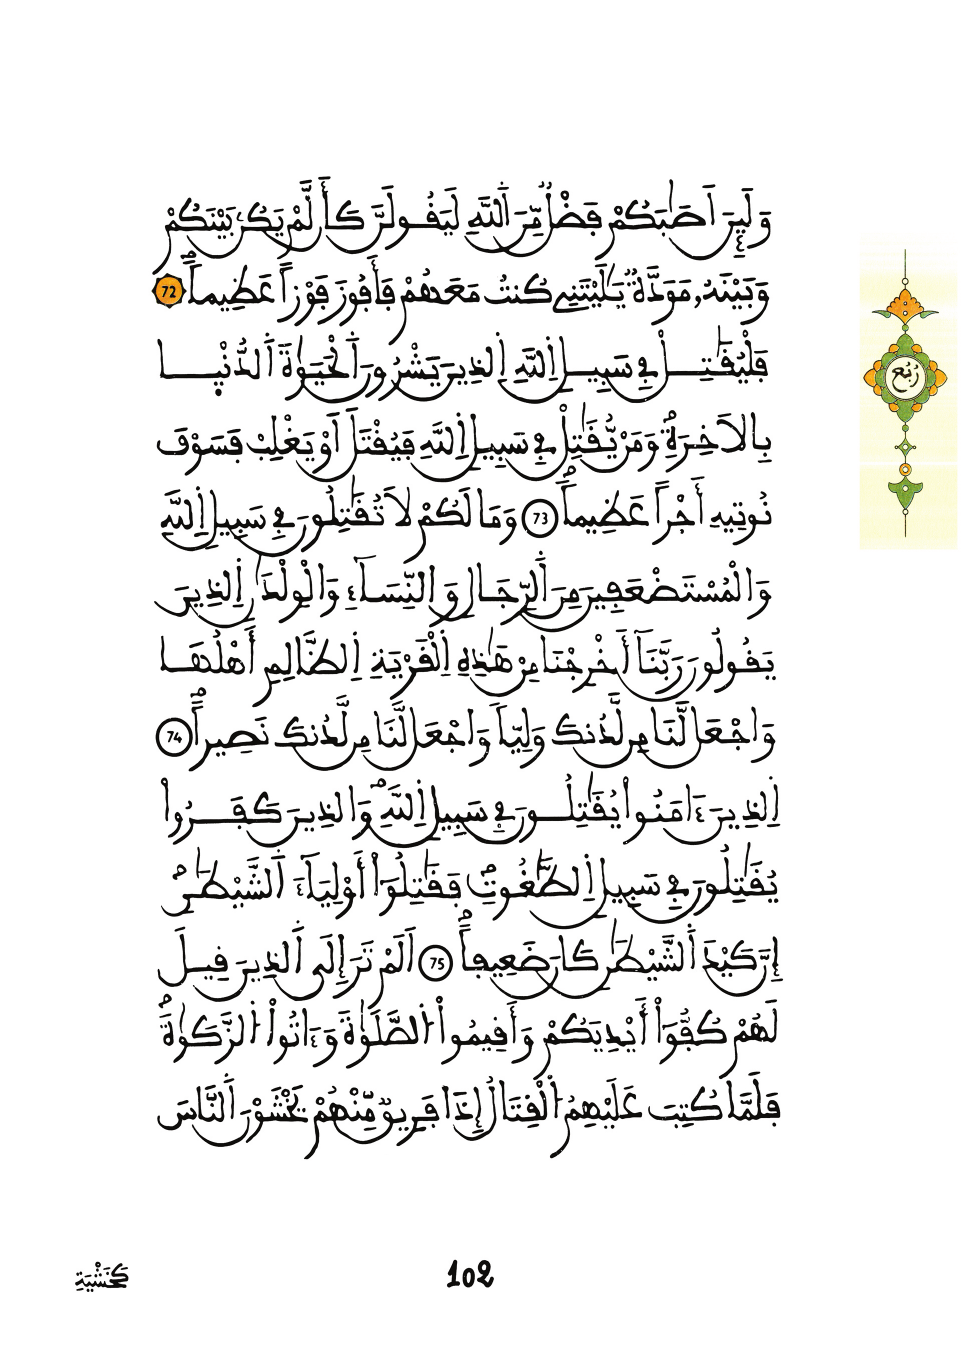 وَلَئِنَ اَصَٰبَكُمْ فَضْلٞ مِّنَ اَ۬للَّهِ لَيَقُولَنَّ كَأَن لَّمْ يَكُنۢ بَيْنَكُمْ
وَبَيْنَهُۥ مَوَدَّةٞ يَٰلَيْتَنِي كُنتُ مَعَهُمْ فَأَفُوزَ فَوْزاً عَظِيماٗۖ 72
فَلْيُقَٰتِلْ فِي سَبِيلِ اِ۬للَّهِ اِ۬لذِينَ يَشْرُونَ اَ۬لْحَيَوٰةَ اَ۬لدُّنْيَا
بِالَاخِرَةِۖ وَمَنْ يُّقَٰتِلْ فِي سَبِيلِ اِ۬للَّهِ فَيُقْتَلَ اَوْ يَغْلِبْ فَسَوْفَ
نُوتِيهِ أَجْراً عَظِيماٗۖ 73 وَمَا لَكُمْ لَا تُقَٰتِلُونَ فِي سَبِيلِ اِ۬للَّهِ
وَالْمُسْتَضْعَفِينَ مِنَ اَ۬لرِّجَالِ وَالنِّسَآءِ وَالْوِلْدَٰنِ اِ۬لذِينَ
يَقُولُونَ رَبَّنَآ أَخْرِجْنَا مِنْ هَٰذِهِ اِ۬لْقَرْيَةِ اِ۬لظَّالِمِ أَهْلُهَا
وَاجْعَل لَّنَا مِن لَّدُنكَ وَلِيّاٗ وَاجْعَل لَّنَا مِن لَّدُنكَ نَصِيراًۖ 74
اِ۬لذِينَ ءَامَنُواْ يُقَٰتِلُونَ فِي سَبِيلِ اِ۬للَّهِۖ وَالذِينَ كَفَرُواْ
يُقَٰتِلُونَ فِي سَبِيلِ اِ۬لطَّٰغُوتِۖ فَقَٰتِلُوٓاْ أَوْلِيَآءَ اَ۬لشَّيْطَٰنِۖ
إِنَّ كَيْدَ اَ۬لشَّيْطَٰنِ كَانَ ضَعِيفاًۖ 75 اَلَمْ تَرَ إِلَي اَ۬لذِينَ قِيلَ
لَهُمْ كُفُّوٓاْ أَيْدِيَكُمْ وَأَقِيمُواْ اُ۬لصَّلَوٰةَ وَءَاتُواْ اُ۬لزَّكَوٰةَۖ
فَلَمَّا كُتِبَ عَلَيْهِمُ اُ۬لْقِتَالُ إِذَا فَرِيقٞ مِّنْهُمْ يَخْشَوْنَ اَ۬لنَّاسَ
رُبُع
102
كَخَشْيَةِ